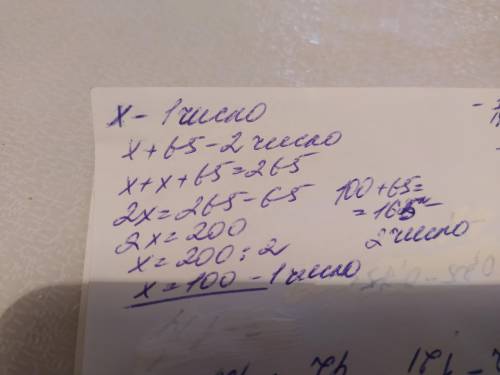 х – 1 число
х + 65 – 2 число
х + х + 65 = 265
2х = 265 – 65
2х = 200
х = 200 : 2
х = 100 – 1 число
100 + 65 =
= 165 –
2 число